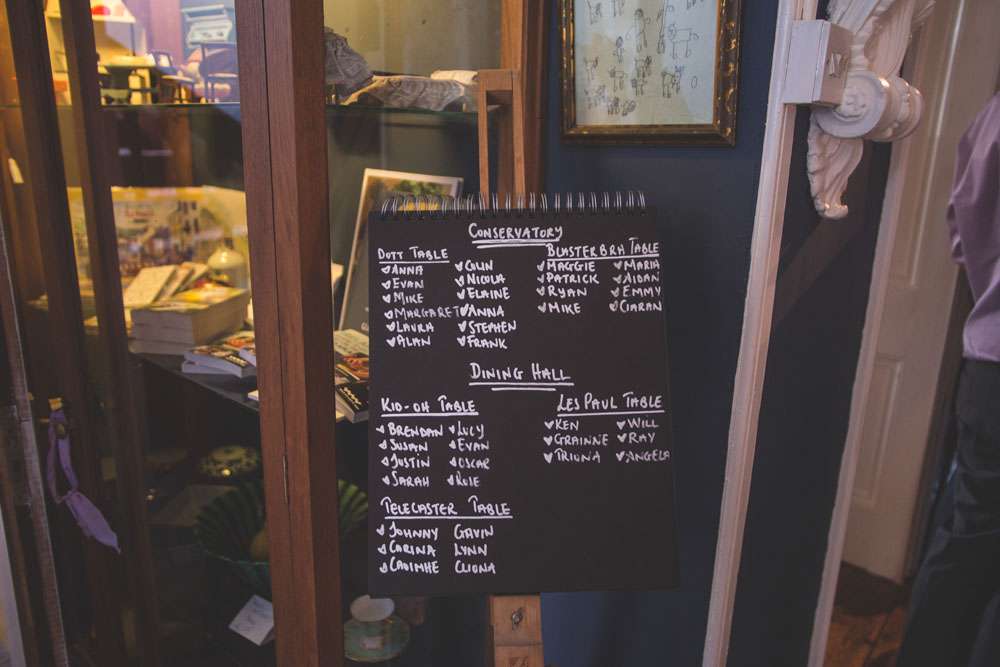 CONSERVATORY
DOTT TABLE
ANNA
EVAN
MIKE
MARGARET
LAURA
ALAN
COLIN
NICOLA
ELAINE
ANNA
STEPHEN
FRANK
BLASTERBRH TABLE
MAGGIE
PATRICK
RYAN
MIKE
MARIA
AIDAN
EMMY
CIARAN
DINING HALL
KID-OH TABLE
BRENDAN
SUSAN
JUSTIN
SARAH
LUCY
EVAN
OSCAR
ROIE
LES PAUL TABLE
KEN
GRAINNE
TRIONA
WILL
RAY
ANGELA
TELECASTER TABLE
JOHNNY GAVIN
CARINA LYNN
CAOIMHE CLIONA